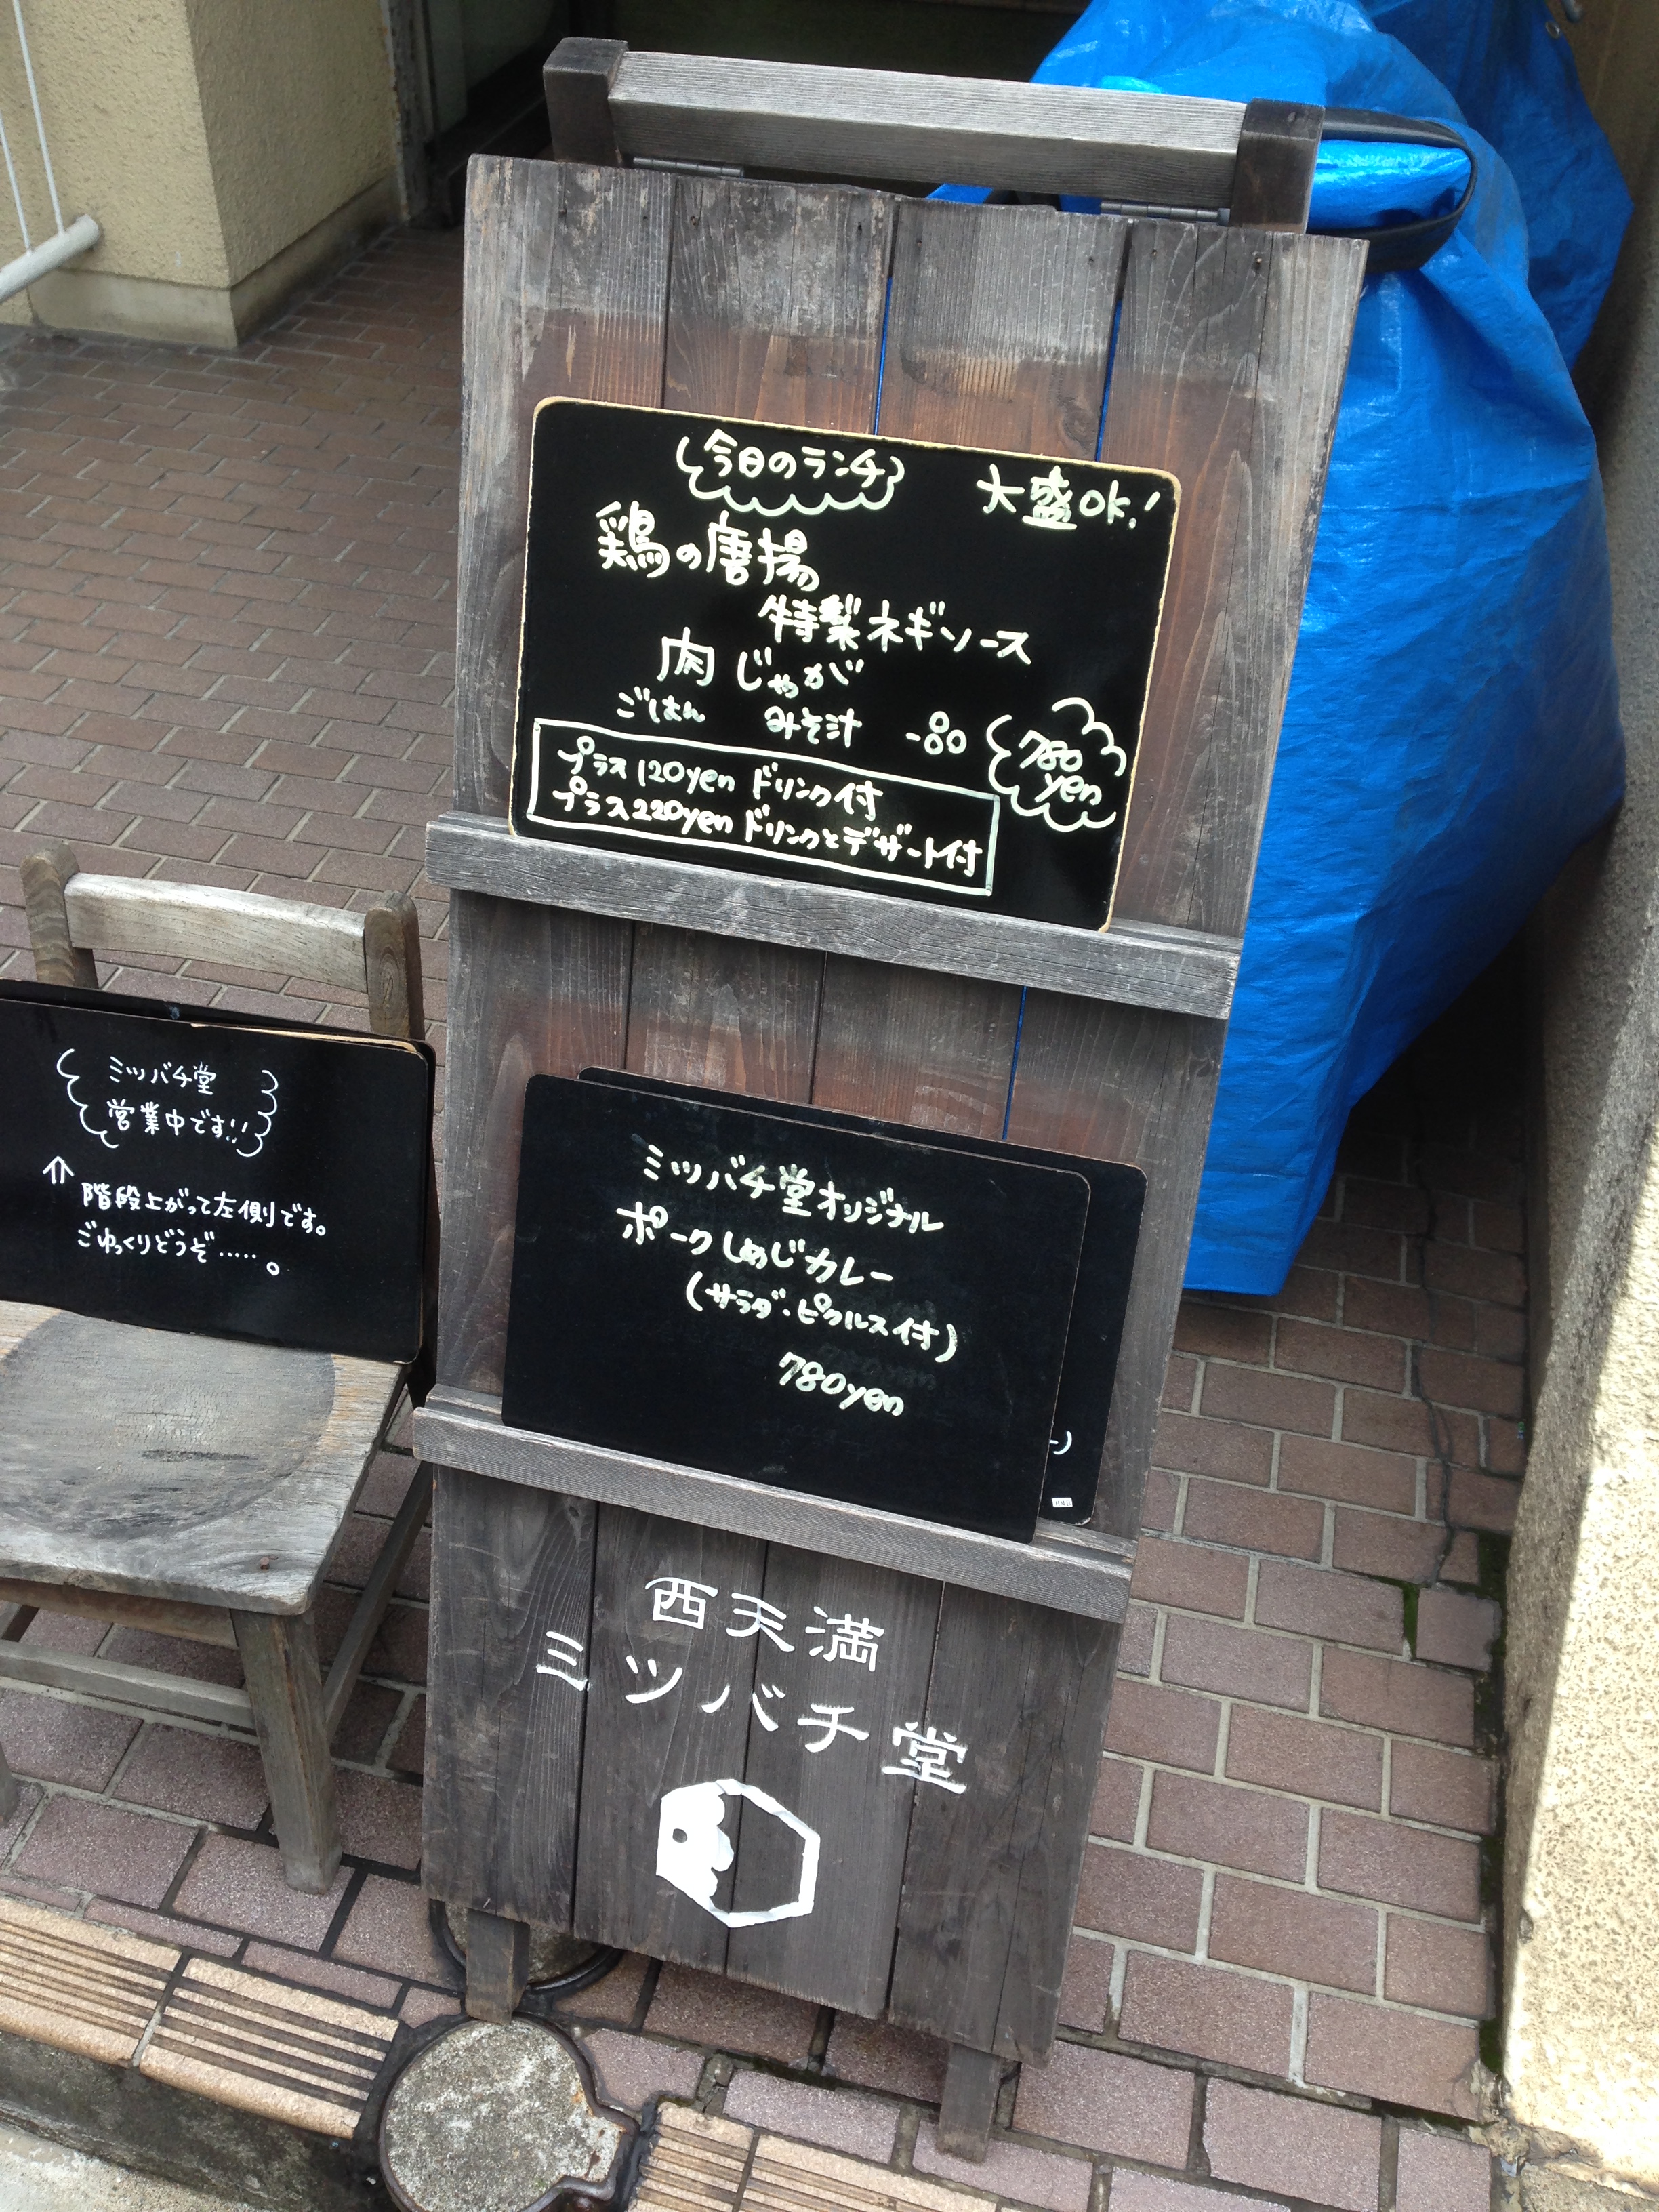 今日のランチ 大盛OK!
鶏の唐揚
特製ネギソース
肉じゃが
ごはん みそ汁 -80 780
yen
プラス120yen ドリンク付
プラス220yen ドリンクとデザート付
ミツバチ堂
営業中です!!
階段上がって左側です。
ごゆっくりどうぞ……。
ミツバチ堂オリジナル
ポークしめじカレー
(サラダ・ピクルス付)
780yen
西天満
ミツバチ堂